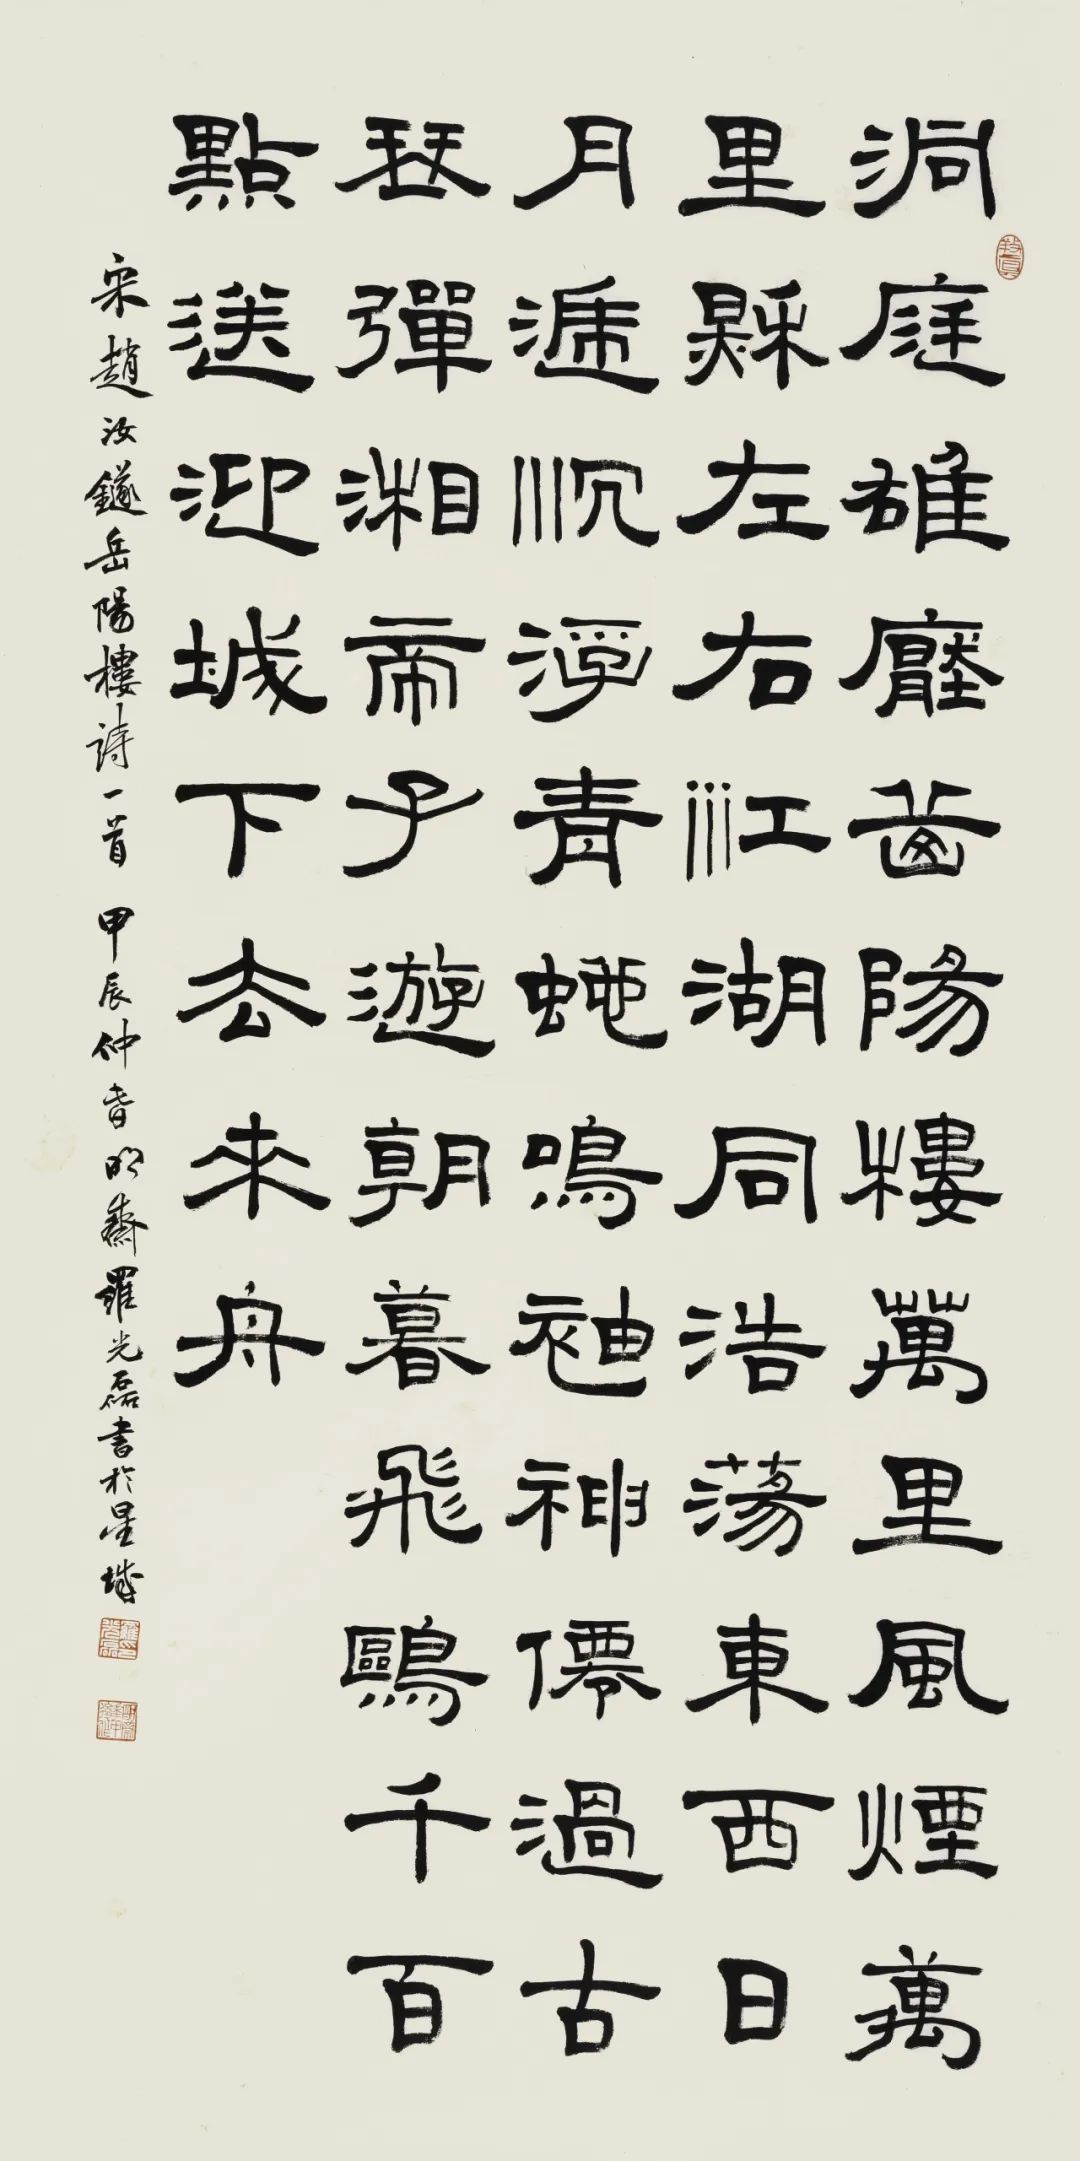 洞庭雄壓岳陽樓萬里風煙萬
里秋左右江湖同浩蕩東西日
月遞沉浮青蛇鳴袖神僊過古
瑟彈湘帝子遊朝暮飛鷗千百
點送迎城下去來舟
宋趙汝鐩岳陽樓詩一首 甲辰仲春明齋羅光磊書於星城